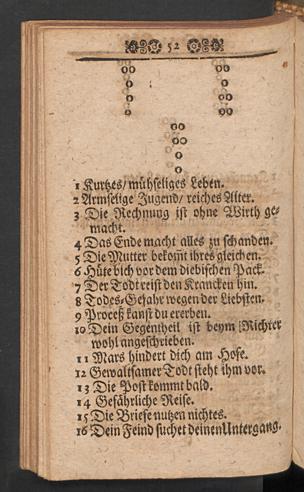 52
1 Kurtzes/ mühseliges Leben.
2 Armselige Jugend/ reiches Alter.
3 Die Rechnung ist ohne Wirth ge-
macht.
4 Das Ende macht alles zu schanden.
5 Die Mutter bekom̃t ihres gleichen.
6 Hüte dich vor dem diebischen Pack.
7 Der Todt reist den Krancken hin.
8 Todes-Gefahr wegen der Liebsten.
9 Proceß kanst du ererben.
10 Dein Gegentheil ist beym Richter
wohl angeschrieben.
11 Mars hindert dich am Hofe.
12 Gewaltsamer Todt steht ihm vor.
13 Die Post kommt bald.
14 Gefährliche Reise.
15 Die Briefe nutzen nichtes.
16 Dein Feind suchet deinen Untergang.